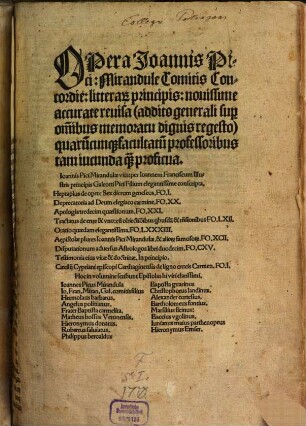 OPera Joannis Pi-
ci: Mirandule Comitis Con-
cordie: litterarū principis: nouissime
accurate reuisa (addito generali sup
omībus memoratu dignis regesto)
quarūcunqȝ facultatū professoribus
tam iucunda qȝ proficua.
Ioannis Pici Mirandulæ vita per Ioannem Franciscum Illu
stris principis Galeotti Pici Filium elegantissime conscripta,
Heptaplus de opere Sex dierum geneseos, FO, I.
Deprecatoria ad Deum elegiaco carmine, FO, XX.
Apologia tredecim quæstionum, FO, XXI,
Tractatus de ente & vno
FO, LXII,
Oratio quædam elegantissima, FO, LXXXIIII,
Aepistolæ plures Ioannis Pici Mirandulæ, & aliorū famosæ, FO, XCII,
Disputationum aduersus Astrologos libri duodecim, FO, CXV,
Testimonia eius vitæ & doctrinæ, In principio,
Cæcilij Cypriani episcopi Carthaginensis de ligno crucis Carmen, FO, I
Hoc in volumine scribunt Epistolas hi viri doctissimi,
Ioannes Picus Mirandula
Io, Fran, Miran, Gal, comitis filius
Hermolaus barbarus,
Angelus politianus,
Frater Baptista carmelita,
Matheus bossus Veronensis,
Hieronymus donatus,
Robertus saluiatus,
Philippus beroaldus
Baptista guarinus
Christophorus landinus,
Alexander cortesius,
Bartholomeus fontius,
Marsilius ficinus
Baccius vgolinus,
Hieronymus Emser,